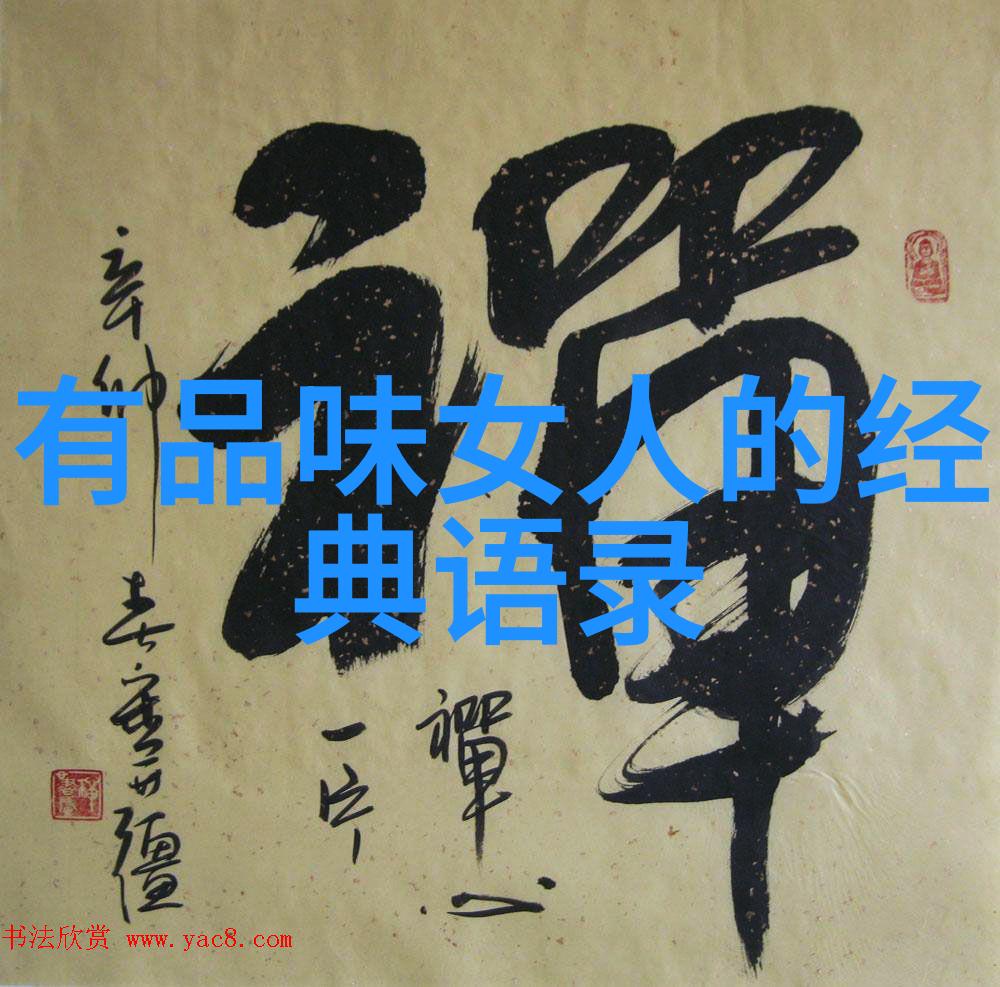 禪
禪心
一片
辛卯
有品味女人的经
典语录
书法欣赏 www.yac8.com